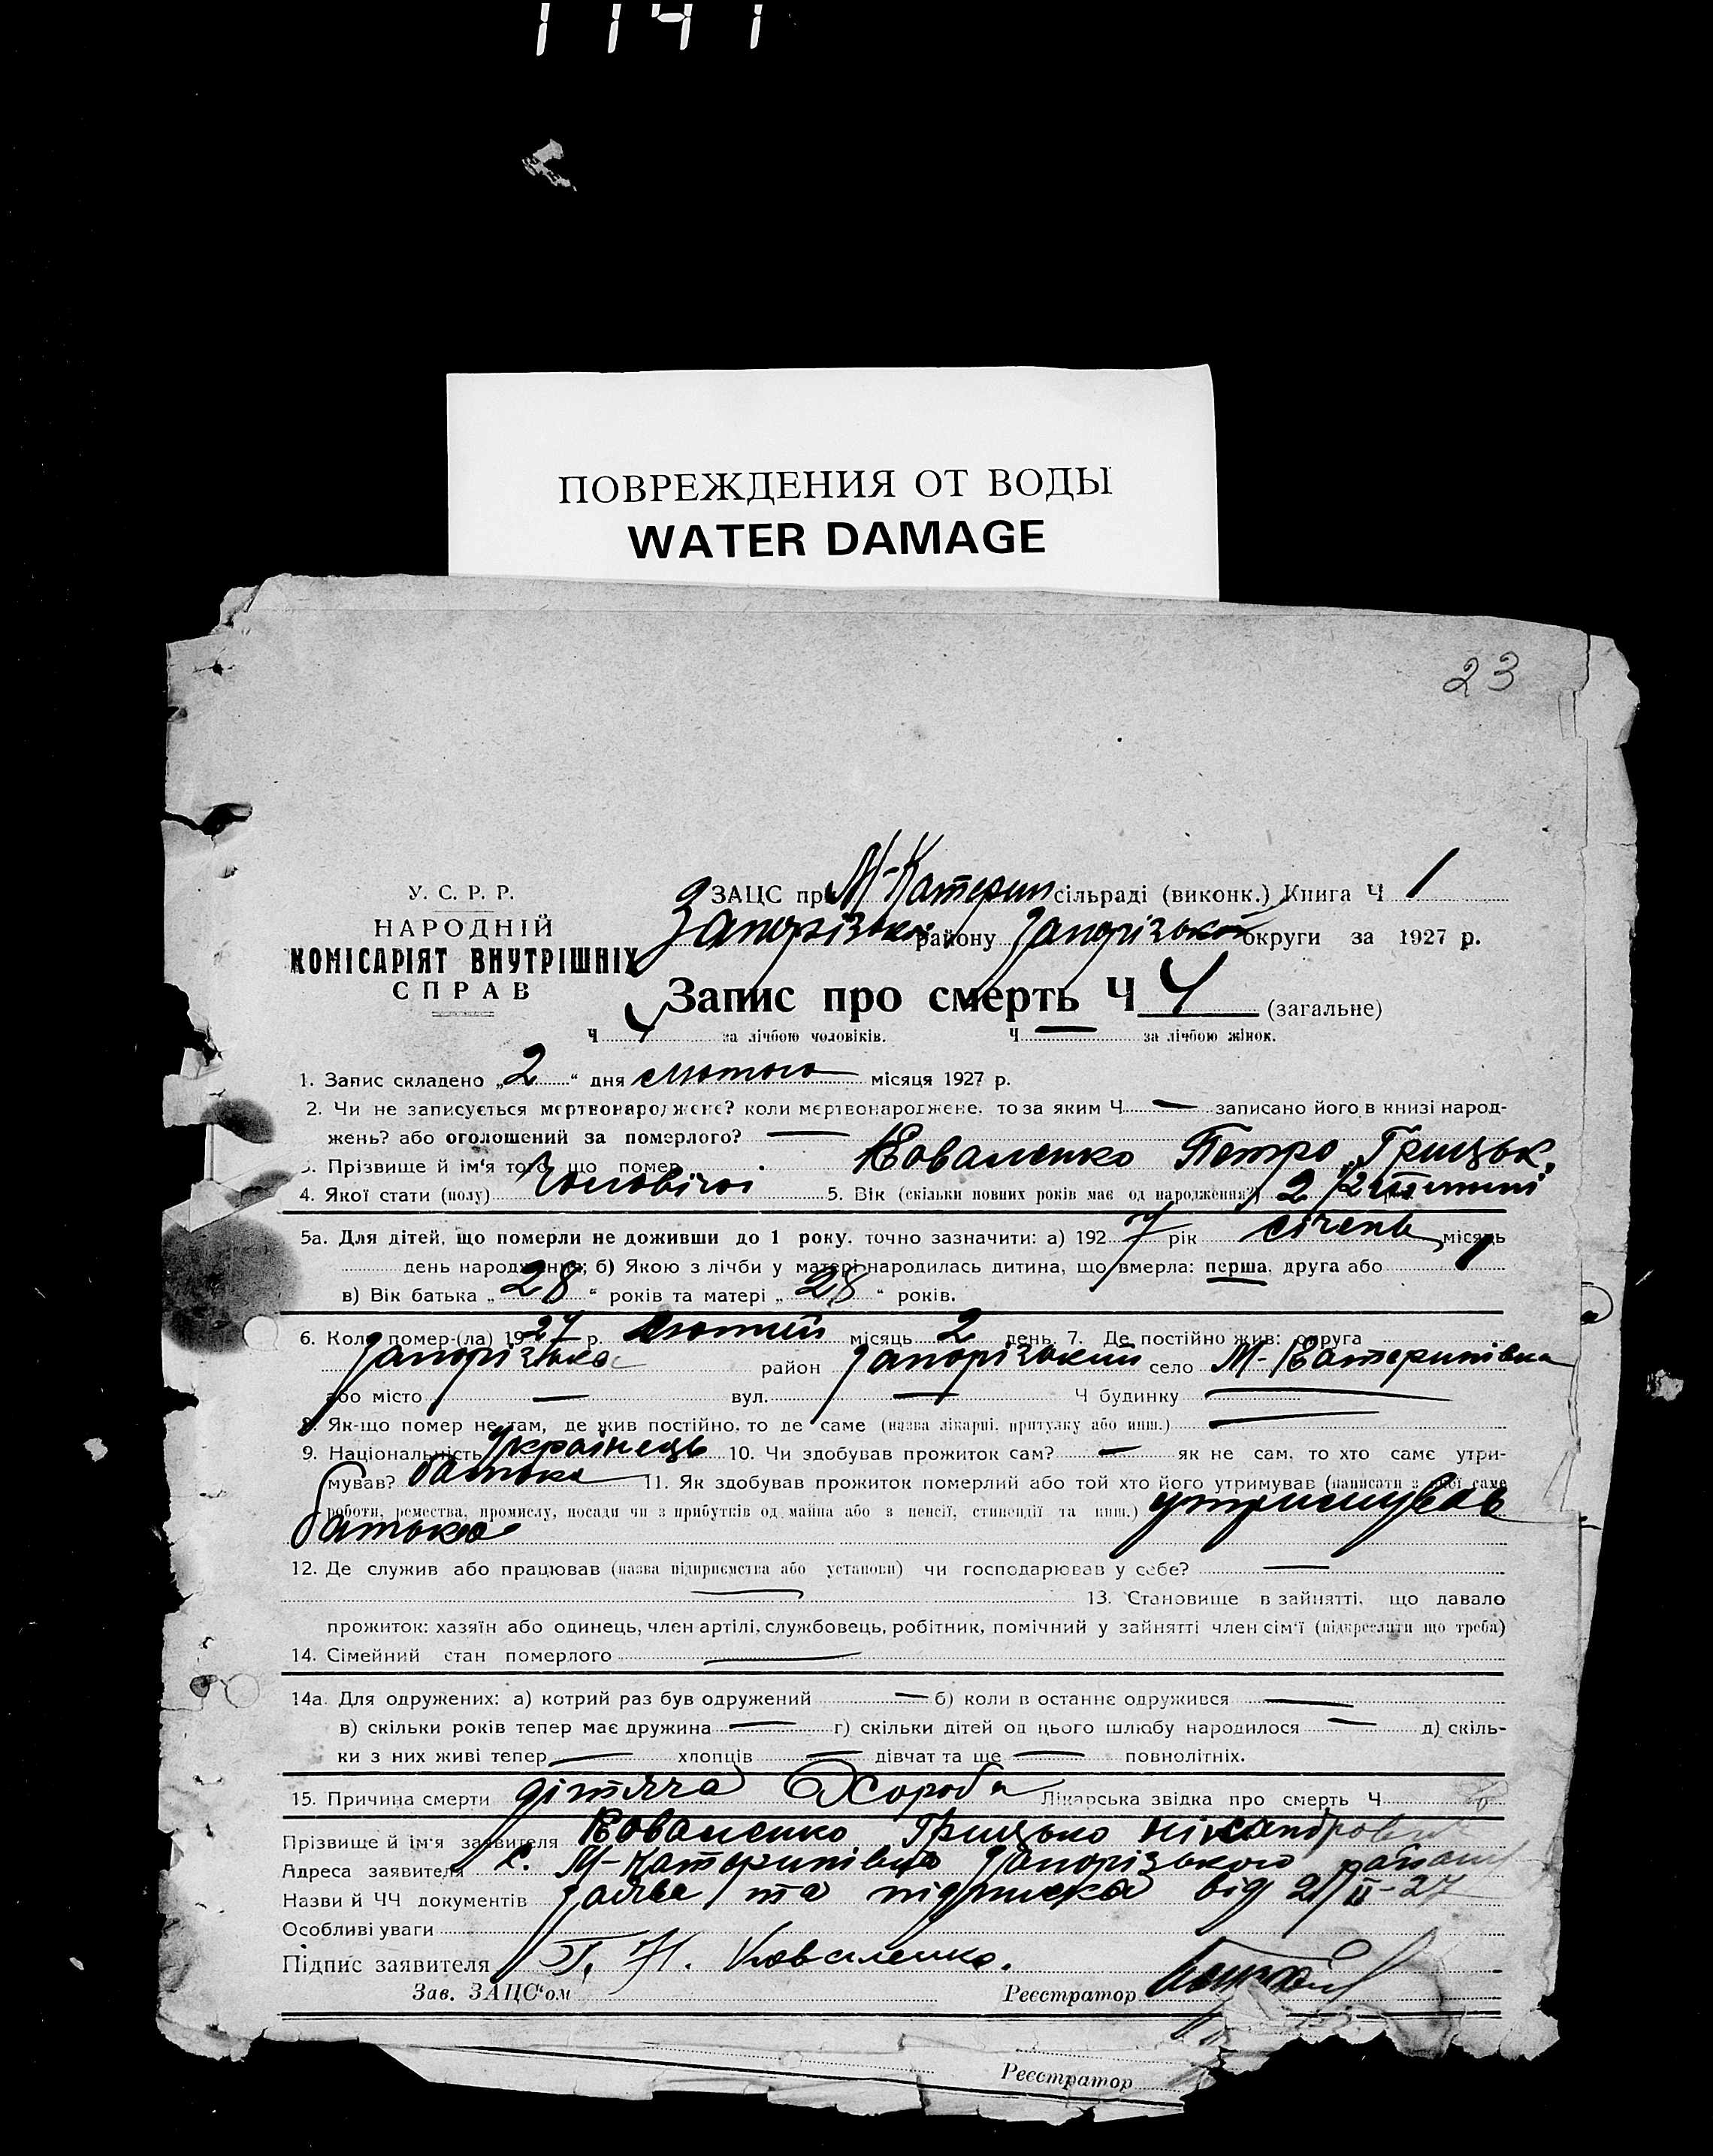 1141
ПОВРЕЖДЕНИЯ ОТ ВОДЫ
WATER DAMAGE
23
У. С. Р. Р.
НАРОДНІЙ
КОМІСАРІЯТ ВНУТРІШНІХ
СПРАВ
ЗАЦС при М-Катерин сільраді (виконк.) Книга Ч 1
Запорізького району Запорізької округи за 1927 р.
Запис про смерть Ч 4 (загальне)
Ч 4 за лічбою чоловіків. Ч — за лічбою жінок.
1. Запис складено „2“ дня лютого місяця 1927 р.
2. Чи не записується мертвонароджене? коли мертвонароджене, то за яким Ч — записано його в книзі народ-
жень? або оголошений за померлого? —
3. Прізвище й ім'я того, що помер Коваленко Петро Грицьк.
4. Якої стати (полу) Чоловічої 5. Вік (скільки повних років має од народження?) 2
5а. Для дітей, що померли не доживши до 1 року, точно зазначити: а) 1927 рік січень місяць
1 день народження; б) Якою з лічби у матері народилась дитина, що вмерла: перша, друга або
в) Вік батька „28“ років та матері „28“ років.
6. Коли помер-(ла) 1927 р. лютий місяць 2 день. 7. Де постійно жив: округа
Запорізька район Запорізький село М-Катеринівка
або місто — вул. — Ч будинку —
8. Як-що помер не там, де жив постійно, то де саме (назва лікарні, притулку або инш.) —
9. Національність Українець 10. Чи здобував прожиток сам? — як не сам, то хто саме утри-
мував? батько 11. Як здобував прожиток померлий або той хто його утримував (написати з якої саме
роботи, ремества, промислу, посади чи з прибутків од майна або з пенсії, стипендії та инш.) утримував
батько
12. Де служив або працював (назва підприємства або установи) чи господарював у себе? —
— 13. Становище в зайнятті, що давало
прожиток: хазяїн або одинець, член артілі, службовець, робітник, помічний у зайнятті член сім'ї (підкреслити що треба)
14. Сімейний стан померлого —
14а. Для одружених: а) котрий раз був одружений — б) коли в останнє одружився —
в) скільки років тепер має дружина — г) скільки дітей од цього шлюбу народилося — д) скіль-
ки з них живі тепер — хлопців — дівчат та ще — повнолітніх.
15. Причина смерти дітяча Хороба Лікарська звідка про смерть Ч
Прізвище й ім'я заявителя Коваленко Грицько Нікандрович
Адреса заявителя с. М-Катеринівка Запорізького району
Назви й ЧЧ документів Заява та підписка від 2/II-27
Особливі уваги
Підпис заявителя Г. Н. Коваленко.
Зав. ЗАЦС'ом Реєстратор
Реєстратор